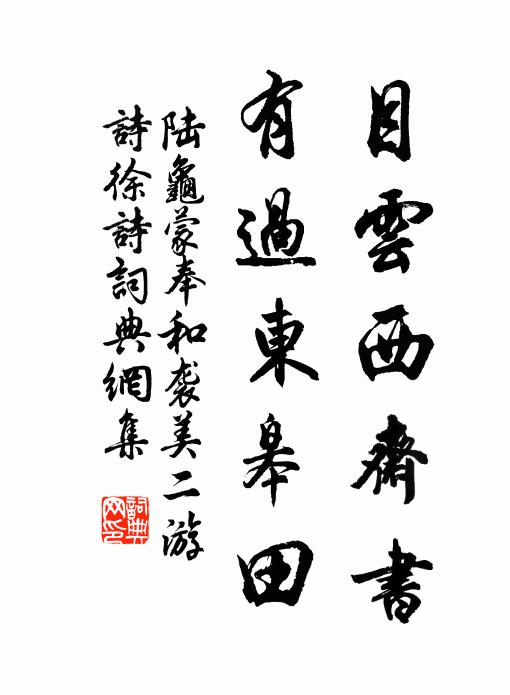 目雲西齋書
有過東皋田
陸龜蒙奉和袭美二游
詩徐詩詞典網集
詞典网印